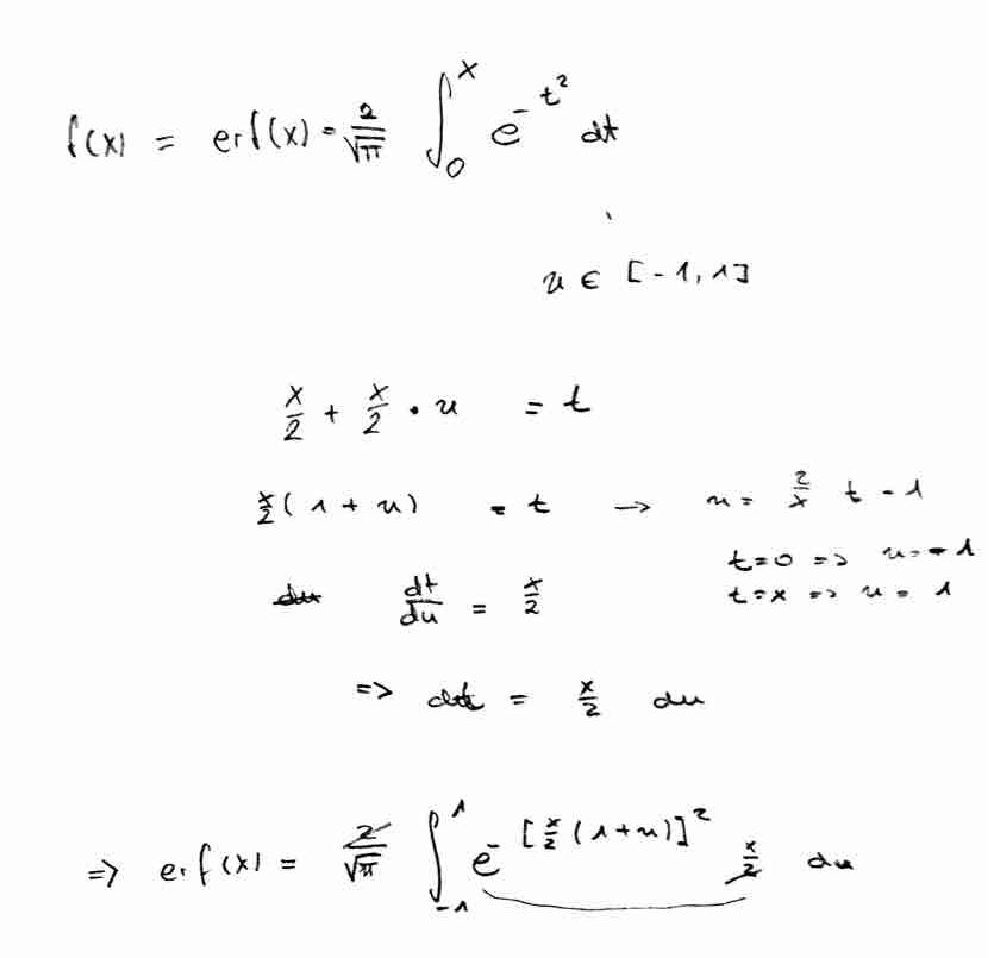 f(x) = erf(x) = 2/√π ∫₀ˣ e^(-t²) dt
u ∈ [-1, 1]
x/2 + x/2 · u = t
x/2 (1 + u) = t → u = 2/x t - 1
t=0 => u=-1
du dt/du = x/2
t=x => u = 1
=> dt = x/2 du
=> erf(x) = 2/√π ∫₋₁¹ e^(-[x/2 (1+u)]²) x/2 du